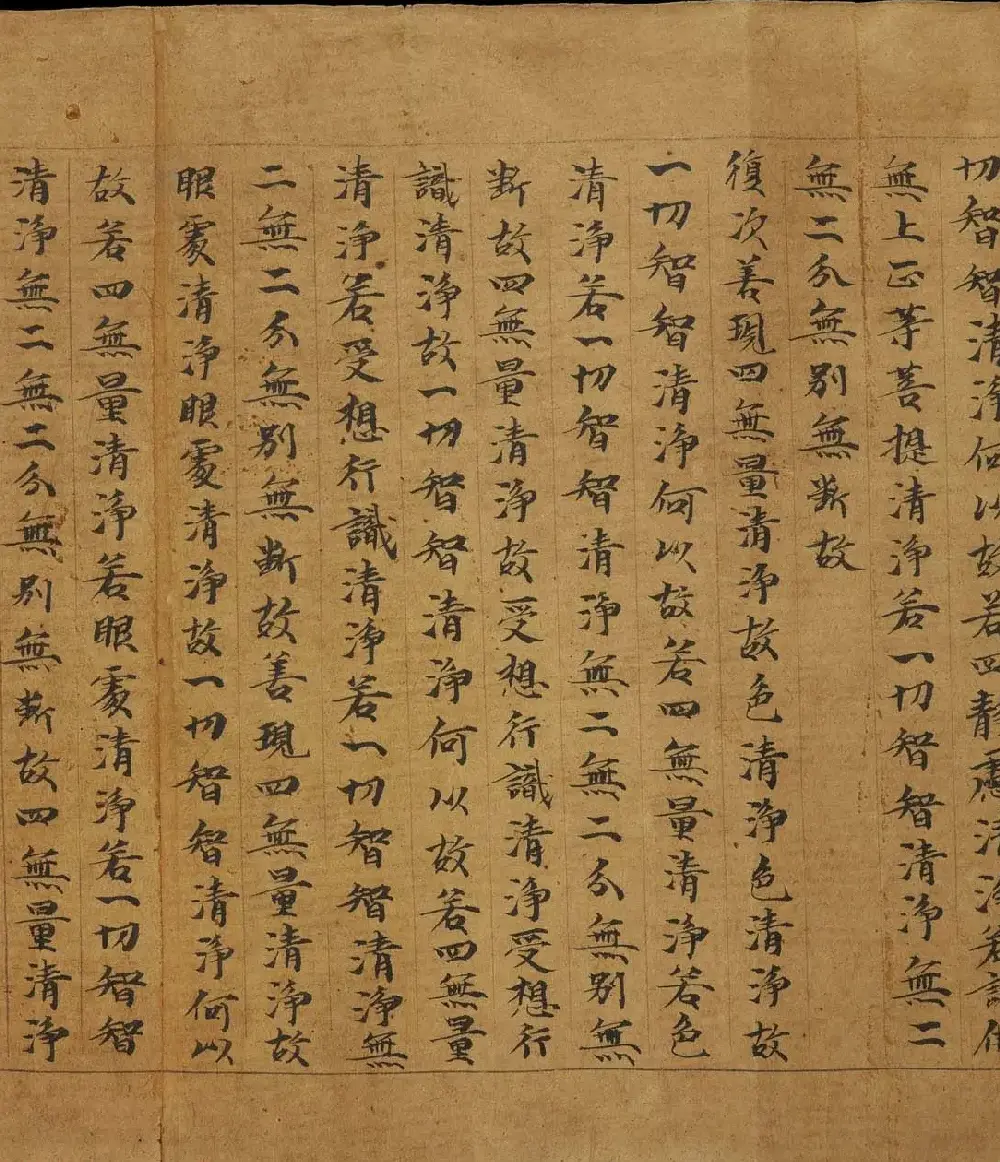 切智智清淨何以故若四靜慮清淨若諸佰
無上正等菩提清淨若一切智智清淨無二
無二分無別無斷故
復次善現四無量清淨故色清淨色清淨故
一切智智清淨何以故若四無量清淨若色
清淨若一切智智清淨無二無二分無別無
斷故四無量清淨故受想行識清淨受想行
識清淨故一切智智清淨何以故若四無量
清淨若受想行識清淨若一切智智清淨無
二無二分無別無斷故善現四無量清淨故
眼處清淨眼處清淨故一切智智清淨何以
故若四無量清淨若眼處清淨若一切智智
清淨無二無二分無別無斷故四無量清淨